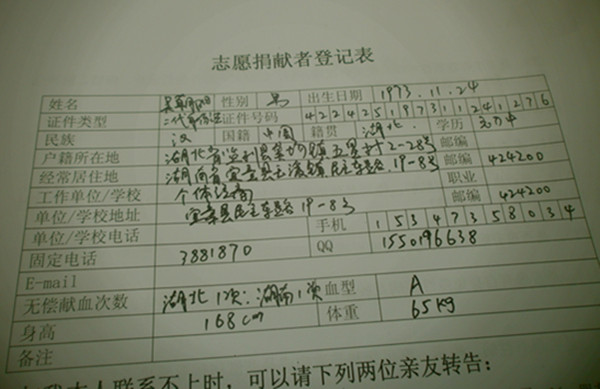 志愿捐献者登记表
姓名 吴朝阳 性别 男 出生日期 1973.11.24
证件类型 二代身份证 证件号码 422425197311241276
民族 汉 国籍 中国 籍贯 湖北 学历
户籍所在地 湖北省监利县 镇五星村2-28号 邮编
经常居住地 湖南省宜章县 镇民主东路19-8号 邮编 424200
工作单位/学校 个体经商 职业
单位/学校地址 宜章县民主东路19-8号 邮编 424200
单位/学校电话 手机 15347358034
固定电话 3881870 QQ 1550196638
E-mail
无偿献血次数 湖北1次:湖南1次 血型 A
身高 168cm 体重 65kg
备注
本人联系不上时,可以请下列两位亲友转告: